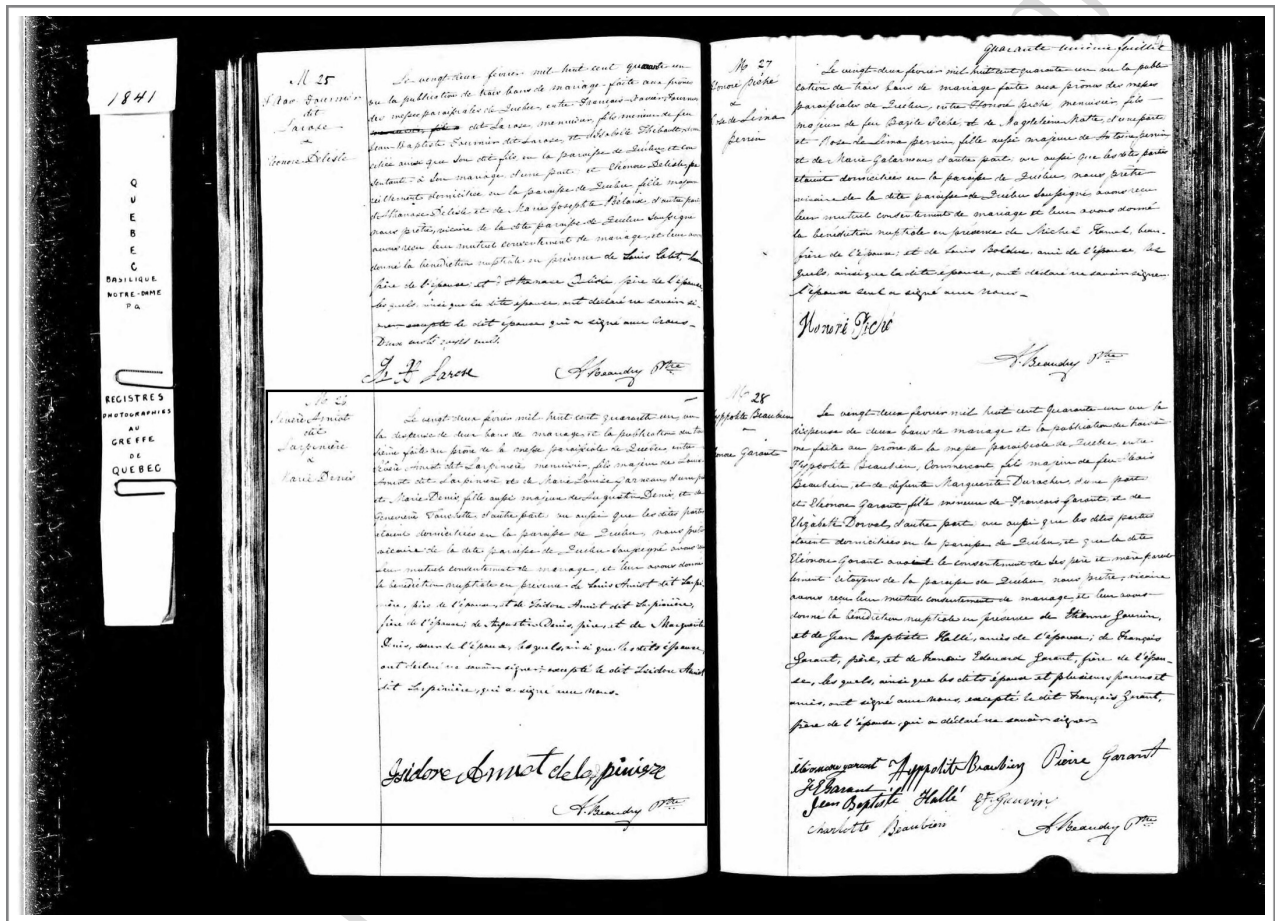 1841
QUEBEC
BASILIQUE
NOTRE-DAME
P Q
REGISTRES
PHOTOGRAPHIES
AU
GREFFE
DE
QUEBEC
M 25
Fournier
dit
Larose
&
Eleonore Delisle
Le vingt deux fevrier mil huit cent quarante un
vu la publication de trois bans de mariage faite aux prônes
des messes paroissiales de Quebec, entre François-Xavier Fournier
dit Larose, menuisier, fils mineur de feu
Jean Baptiste Fournier dit Larose, et d'Isabelle Thibault, domi
ciliée ainsi que son dit fils, en la paroisse de Quebec et con
sentante à son mariage, d'une part; et Eléonore Delisle,
domiciliée en la paroisse de Quebec, fille majeure
de Athanase Delisle et de Marie Josephte Béland, d'autre part
nous prêtre, vicaire de la dite paroisse de Quebec soussigné
avons reçu leur mutuel consentement de mariage, et leur avons
donné la bénédiction nuptiale en présence de Louis
de l'épouse, et Athanase Delisle père de l'épouse
les quels, ainsi que la dite épouse, ont déclaré ne savoir si
gner excepté le dit époux qui a signé avec nous_
Deux mots rayés nuls.
F X Larose
A. Beaudry Ptre
M 26
Amiot
dit
Larpinière
&
Marie Denis
Le vingt deux fevrier mil huit cent quarante un, vu
la dispense de deux bans de mariage, et la publication du troi
sième faite au prône de la messe paroissiale de Quebec, entre
Amiot dit Larpinière menuisier, fils majeur de Louis
Amiot dit Larpinière et de Marie Louise, d'une part
et Marie Denis, fille aussi majeure de Augustin Denis, et de
Genevieve, d'autre part vu aussi que les dites parties
étaient domiciliées en la paroisse de Quebec, nous prêtre
vicaire de la dite paroisse de Quebec soussigné avons reçu
leur mutuel consentement de mariage, et leur avons donné
la bénédiction nuptiale en présence de Louis Amiot dit Larpi
nière, père de l'époux, et de Isidore Amiot dit Larpinière,
frère de l'époux; de Augustin Denis, père, et de Marguerite
Denis, sœur de l'épouse, les quels, ainsi que les dits époux,
ont déclaré ne savoir signer; excepté le dit Isidore Amiot
dit Larpinière, qui a signé avec nous.
Isidore Amiot de larpiniere
A. Beaudry Ptre
quarante unième feuillet
M 27
Honoré Piché
&
Rose de Lima
Perrin
Le vingt deux fevrier mil huit cent quarante un vu la publi
cation de trois bans de mariage faite aux prônes des messes
paroissiales de Quebec, entre Honoré Piché menuisier fils
majeur de feu Bazile Piché, et de Magdeleine Matte, d'une part
et Rose de Lima perrin, fille aussi majeure de Antoine perrin
et de Marie Galarneau d'autre part, vu aussi que les dites parties
étaient domiciliées en la paroisse de Quebec, nous prêtre
vicaire de la dite paroisse de Quebec soussigné avons reçu
leur mutuel consentement de mariage et leur avons donné
la bénédiction nuptiale en présence de Michel Hamel, beau-
frère de l'épouse; et de Louis Bolduc, ami de l'épouse les
quels, ainsi que la dite épouse, ont déclaré ne savoir signer
l'époux seul a signé avec nous_
Honoré Piché
A. Beaudry Ptre
M 28
Hyppolite Beaubien
Eleonore Garant
Le vingt deux fevrier mil huit cent Quarante-un vu la
dispense de deux bans de mariage et la publication du troisiè
me faite au prône de la messe paroissiale de Quebec entre
Hyppolite Beaubien, Commercant fils majeur de feu
Beaubien, et de defunte Marguerite Durocher, d'une part
et Eléonore Garant fille mineure de François Garant et de
Elizabeth Dorval, d'autre part vu aussi que les dites parties
étaient domiciliées en la paroisse de Quebec, et que la dite
Eléonore Garant avait le consentement de ses père et mère
citoyens de la paroisse de Quebec, nous, prêtre, vicaire
avons reçu leur mutuel consentement de mariage, et leur avons
donné la bénédiction nuptiale en présence de Etienne Gauvin,
et de Jean Baptiste Hallé, amis de l'époux; de François
Garant, père, et de François Edouard Garant, frère de l'épou-
se, les quels, ainsi que les dits époux et plusieurs parens et
amis, ont signé avec nous, excepté le dit François Garant,
père de l'épouse, qui a déclaré ne savoir signer
éléonore garant Hyppolite Beaubien Pierre Garant
F E Garant
Jean Baptiste Hallé Et. Gauvin
Charlotte Beaubien A. Beaudry Ptre